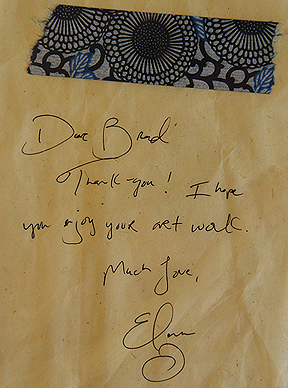 Dear Brad
Thank-you! I hope
you enjoy your art work.
Much love,